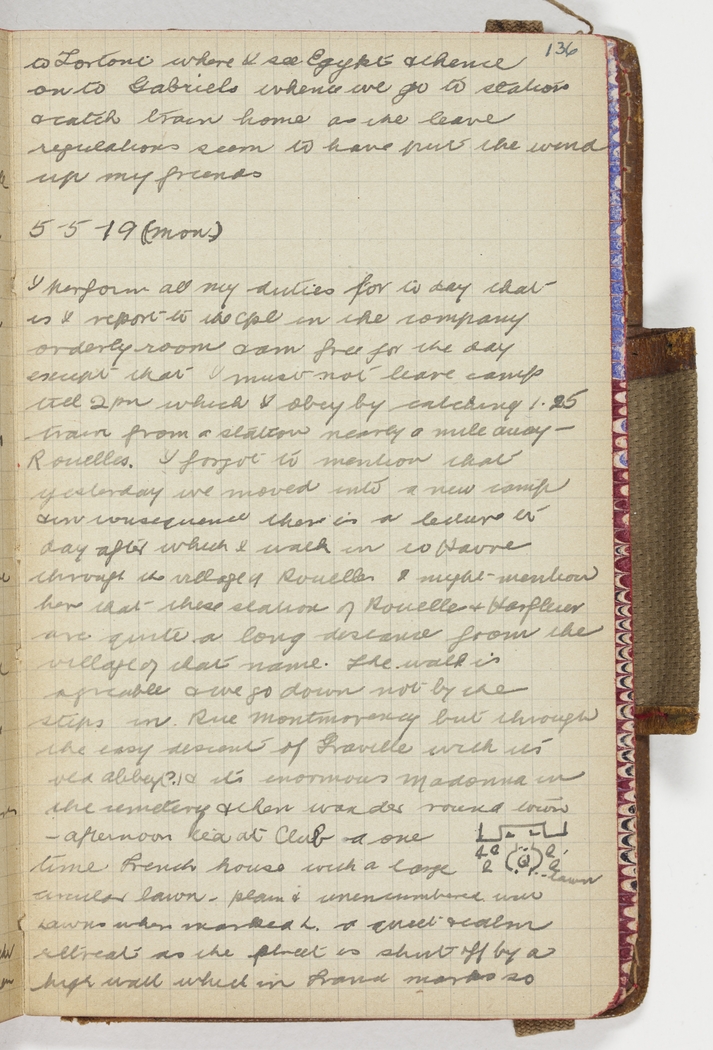 136
to Tortoni where I see Egypt & thence
on to Gabriels whence we go to station
& catch train home as the leave
regulations seem to have put the wind
up my friends
5-5-19 (Mon.)
I perform all my duties for to day that
is I report to the Cpl in the company
orderly room & am free for the day
except that I must not leave camp
till 2 pm which I obey by catching 1.25
train from a station nearly a mile away -
Rouelles. I forgot to mention that
yesterday we moved into a new camp
& in consequence there is a lecture to
day after which I walk in to Havre
through the village of Rouelles I might mention
here that these station of Rouelle & Harfleur
are quite a long distance from the
village of that name. The walk is
agreable & we go down not by the
steps in Rue Montmorency but through
the easy descent of Graville with its
old abbey(?) & its enormous Madonna in
the cemetery & then wander round town
- afternoon tea at Club - a one
time French house with a large
lawn
circular lawn - plain & unencumbered
lawns when a quiet & calm
retreat as the street is shut off by a
high wall which in France marks so